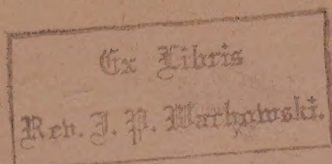 Ex Libris
Rev. J. P. Wachowski.